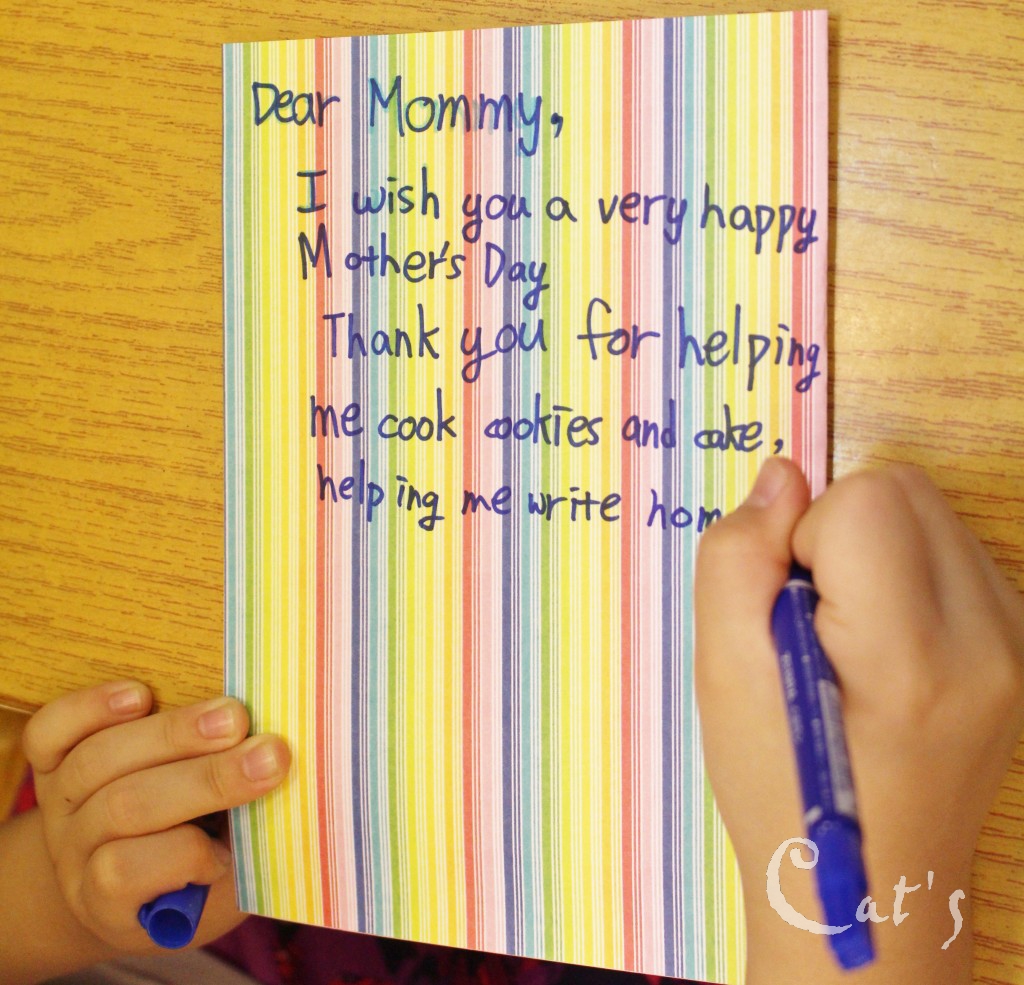 Dear Mommy,
I wish you a very happy
Mother's Day
Thank you for helping
me cook cookies and cake,
helping me write hom
Cat's